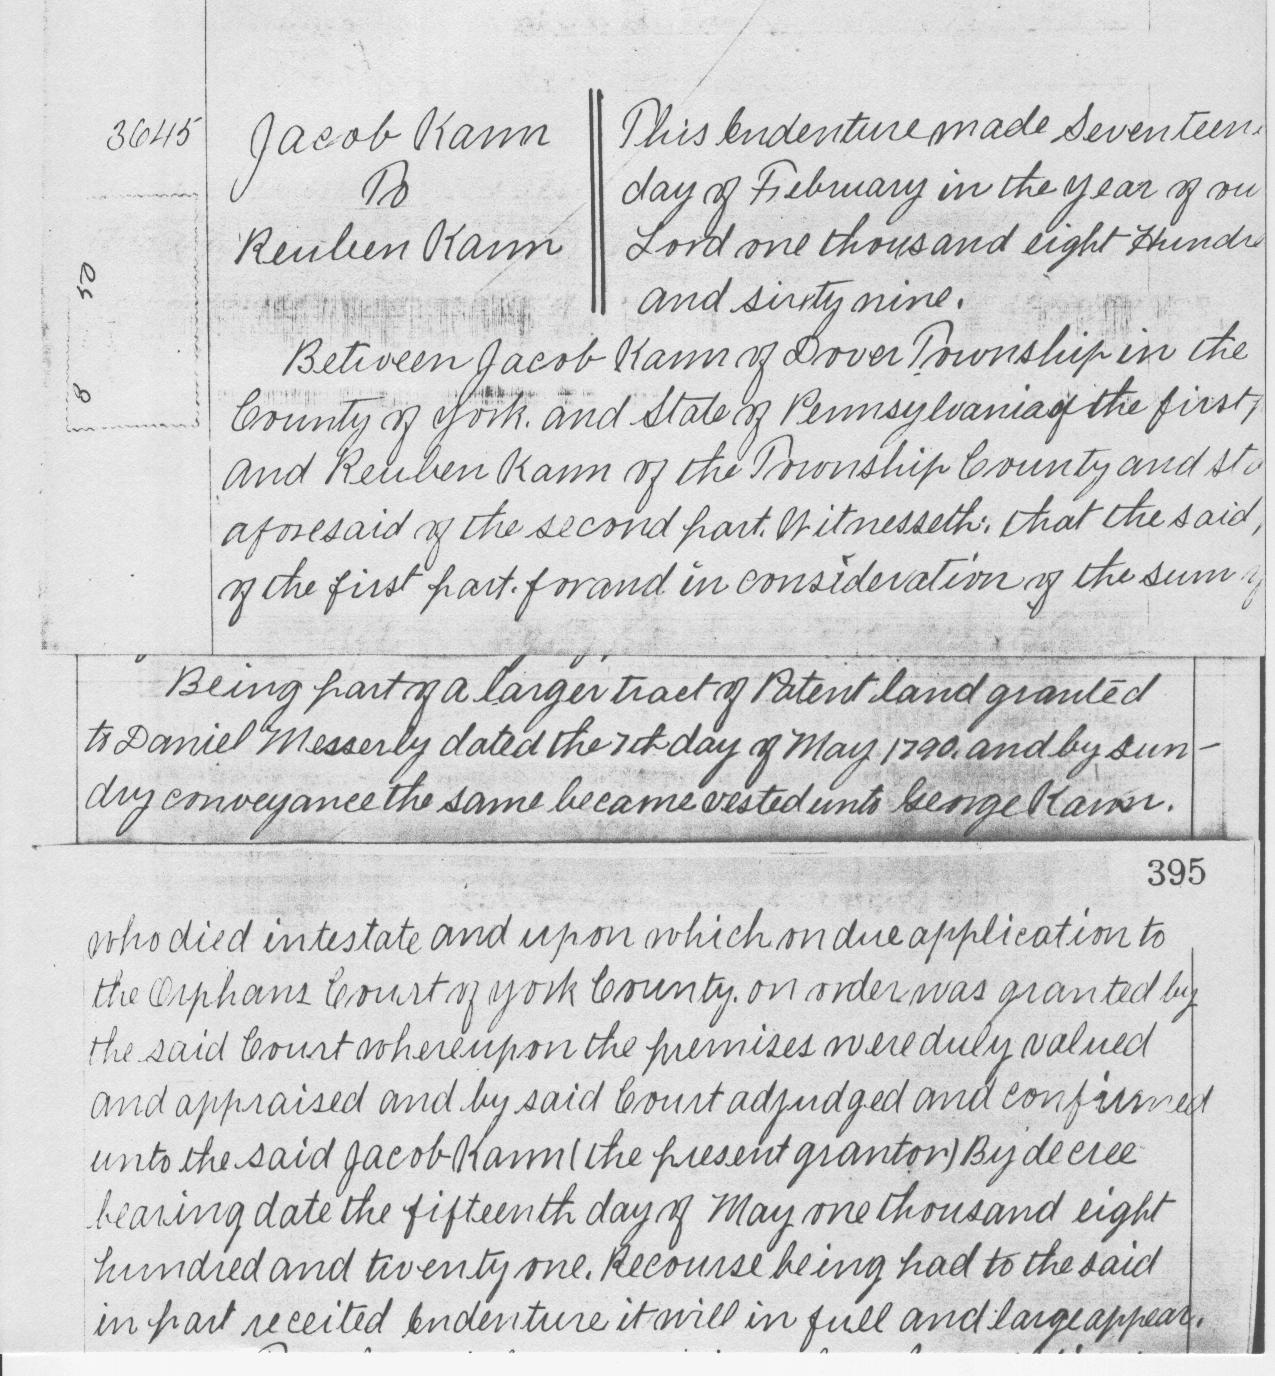 3645
Jacob Kann
To
Reuben Kann
50
8
This Indenture made Seventeen
day of February in the year of ou
Lord one thousand eight Hundre
and sixty nine.
Between Jacob Kann of Dover Township in the
County of York. and State of Pennsylvania of the first,
and Reuben Kann of the Township County and Sta
aforesaid of the second part. Witnesseth: that the said,
of the first part. for and in consideration of the sum of
Being part of a larger tract of Patent land granted
to Daniel Messerly dated the 7th day of May 1790. and by sun-
dry conveyance the same became vested unto George Kann.
395
who died intestate and upon which on due application to
the Orphans Court of York County. on order was granted by
the said Court whereupon the premises were duly valued
and appraised and by said Court adjudged and confirmed
unto the said Jacob Kann (the present grantor) By decree
bearing date the fifteenth day of May one thousand eight
hundred and twenty one. Recourse being had to the said
in part receited Indenture it will in full and large appear.